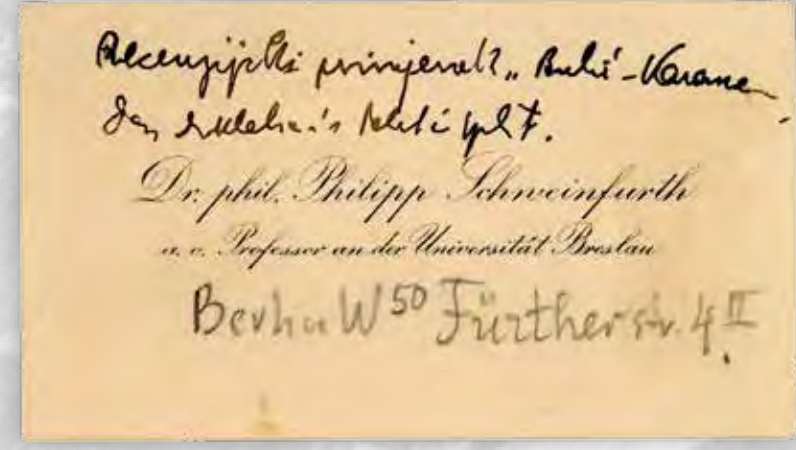 Recenzijski primjerak „Bulić-Karaman
Dr. phil. Philipp Schweinfurth
a. o. Professor an der Universität Breslau
Berlin W 50 Fürther str. 4 II